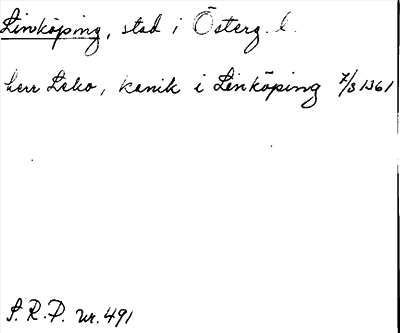 Linköping, stad i Österg. l.
herr Leko, kanik i Linköping 7/8 1361
S.R.P. nr. 491